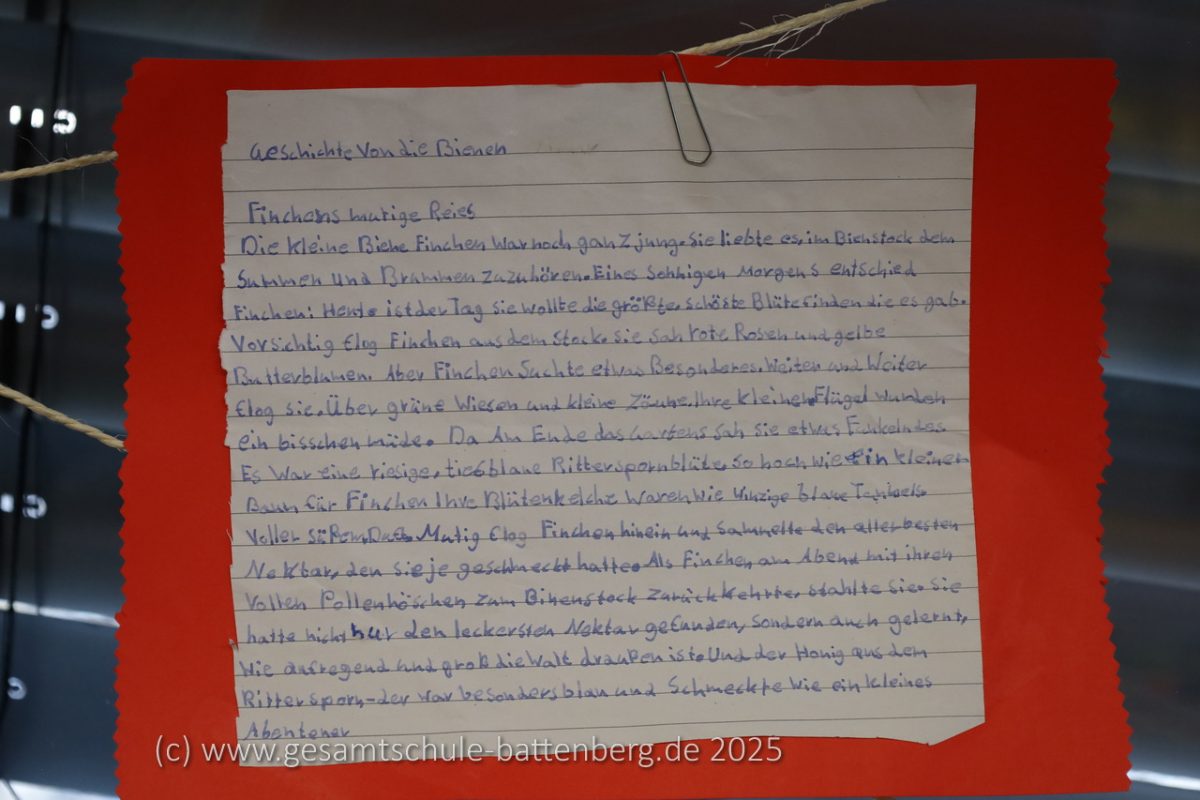 Geschichte von die Bienen
Finchens mutige Reies
Die kleine Biene Finchen war noch ganz jung. Sie liebte es, im Bienstock dem
Summen und Brummen zuzuhören. Eines Sonnigen Morgens entschied
Finchen: Heute ist der Tag sie wollte die größte, schöste Blüte finden die es gab.
Vorsichtig flog Finchen aus dem Stock. sie sah rote Rosen und gelbe
Butterblumen. Aber Finchen Suchte etwas Besonderes. Weiter und Weiter
flog sie. Über grüne Wiesen und kleine Zäune. Ihre kleinen Flügel wurden
ein bisschen müde. Da Am Ende das Gartens sah sie etwas Funkelndes
Es War eine riesige, tiefblaue Ritterspornblüte, so hoch wie ein kleinen
Baum für Finchen Ihre Blütenkelche Waren wie winzige blaue
Voller Mutig flog Finchen hinein und Sammelte den allerbesten
Nektar, den sie je geschmeckt hatte. Als Finchen am Abend mit ihren
Vollen Pollenhöschen zum Binenstock zurückkehrte, stahlte sie. Sie
hatte nicht nur den leckersten Nektar gefunden, sondern auch gelernt,
Wie aufregend und groß die Walt draußen ist. Und der Honig aus dem
Rittersporn-der war besonders blau und Schmeckte wie ein kleines
Abenteuer
(c) www.gesamtschule-battenberg.de 2025